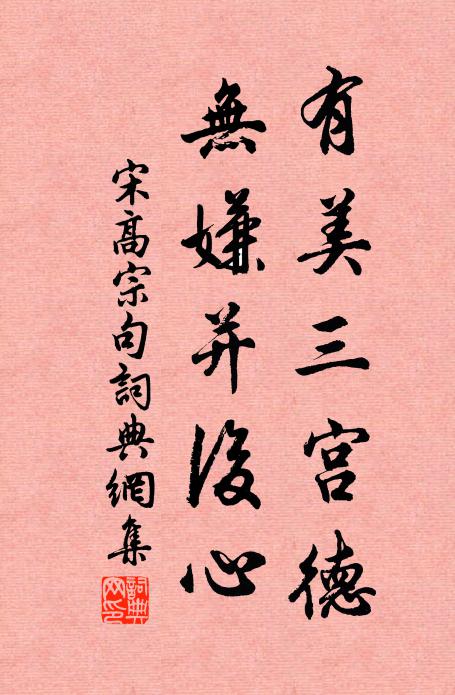 有美三宫德
無嫌并後心
宋高宗句詞典網集
詞典網印